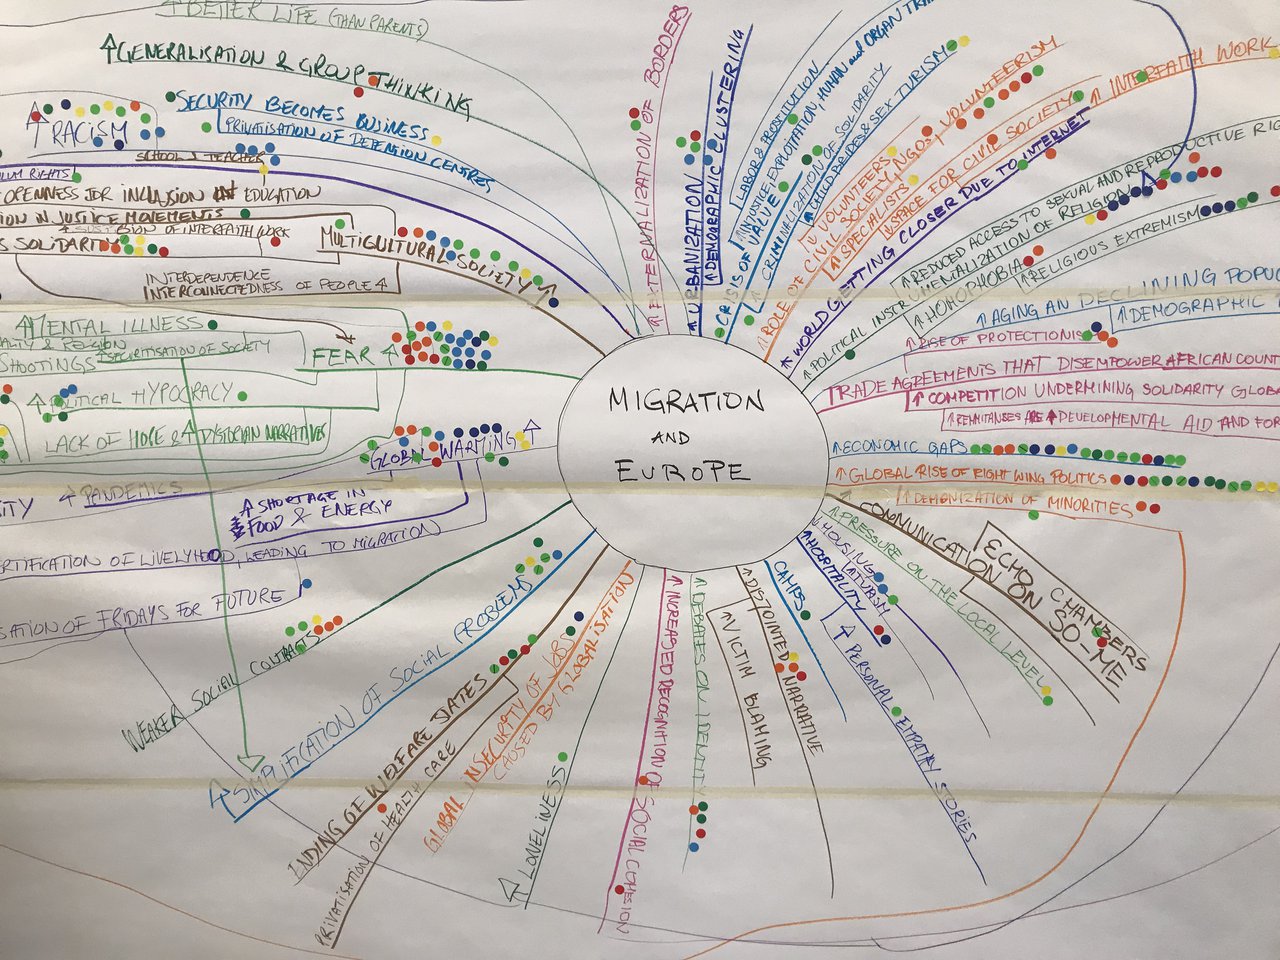 ↑ BETTER LIFE (THAN PARENTS)
↑ GENERALISATION & GROUP THINKING
↑ RACISM
SECURITY BECOMES BUSINESS
PRIVATISATION OF DETENTION CENTRES
SCHOOL & TEACHERS
RIGHTS
OPENNESS FOR INCLUSION EDUCATION
IN JUSTICE MOVEMENTS
OF INTERFAITH WORK
SOLIDARITY
MULTICULTURAL SOCIETY ↑
INTERDEPENDENCE
INTERCONNECTEDNESS OF PEOPLE ↑
↑ MENTAL ILLNESS
& RELIGION
SHOOTINGS
↑ SECURITISATION OF SOCIETY
FEAR ↑
↑ POLITICAL HYPOCRACY
LACK OF HOPE & ↑ DYSTOPIAN NARRATIVES
GLOBAL WARMING ↑
↑ PANDEMICS
↑ SHORTAGE IN
FOOD & ENERGY
OF LIVELYHOOD, LEADING TO MIGRATION
SATION OF FRIDAYS FOR FUTURE
WEAKER SOCIAL CONTRACTS
↑ SIMPLIFICATION OF SOCIAL PROBLEMS
ENDING OF WELFARE STATES
PRIVATISATION OF HEALTH CARE
GLOBAL INSECURITY OF JOBS
CAUSED BY GLOBALISATION
↑ LONELINESS
↑ INCREASED RECOGNITION OF SOCIAL COHESION
↑ DEBATES ON IDENTITY
↑ DISJOINTED NARRATIVE
↑ VICTIM BLAMING
CAMPS
↑ HOSPITALITY
↑ PERSONAL EMPATHY STORIES
↓ HOUSING
↑ PRESSURE ON THE LOCAL LEVEL
COMMUNICATION ON SO-ME
ECHO CHAMBERS
MIGRATION
AND
EUROPE
↑ EXTERNALIZATION OF BORDERS
↑ URBANIZATION
↑ DEMOGRAPHIC CLUSTERING
↑ CRISIS OF VALUE
LABOR & PROSTITUTION
↑ INJUSTICE, EXPLOITATION, HUMAN and ORGAN TRA
↑ CRIMINALIZATION OF SOLIDARITY
↑ CHILD BRIDES & SEX TURISM
↑ ROLE OF CIVIL SOCIETY, NGOS, VOLUNTEERISM
↑↓ VOLUNTEERS
↑ SPECIALISTS
↓ SPACE FOR CIVIL SOCIETY
↑ INTERFAITH WORK
↑ WORLD GETTING CLOSER DUE TO INTERNET
↑ POLITICAL INSTRUMENTALIZATION OF RELIGION
↑ REDUCED ACCESS TO SEXUAL AND REPRODUCTIVE RIG
↑ HOMOPHOBIA
↑ RELIGIOUS EXTREMISM
↑ AGING AN DECLINING POPUL
↑ DEMOGRAPHIC
↑ RISE OF PROTECTIONIS
TRADE AGREEMENTS THAT DISEMPOWER AFRICAN COUNT
↑ COMPETITION UNDERMINING SOLIDARITY GLOBA
↑ REMITANSES ARE ↑ DEVELOPMENTAL AID AND FOR
↑ ECONOMIC GAPS
↑ GLOBAL RISE OF RIGHT WING POLITICS
↑ DEMONIZATION OF MINORITIES